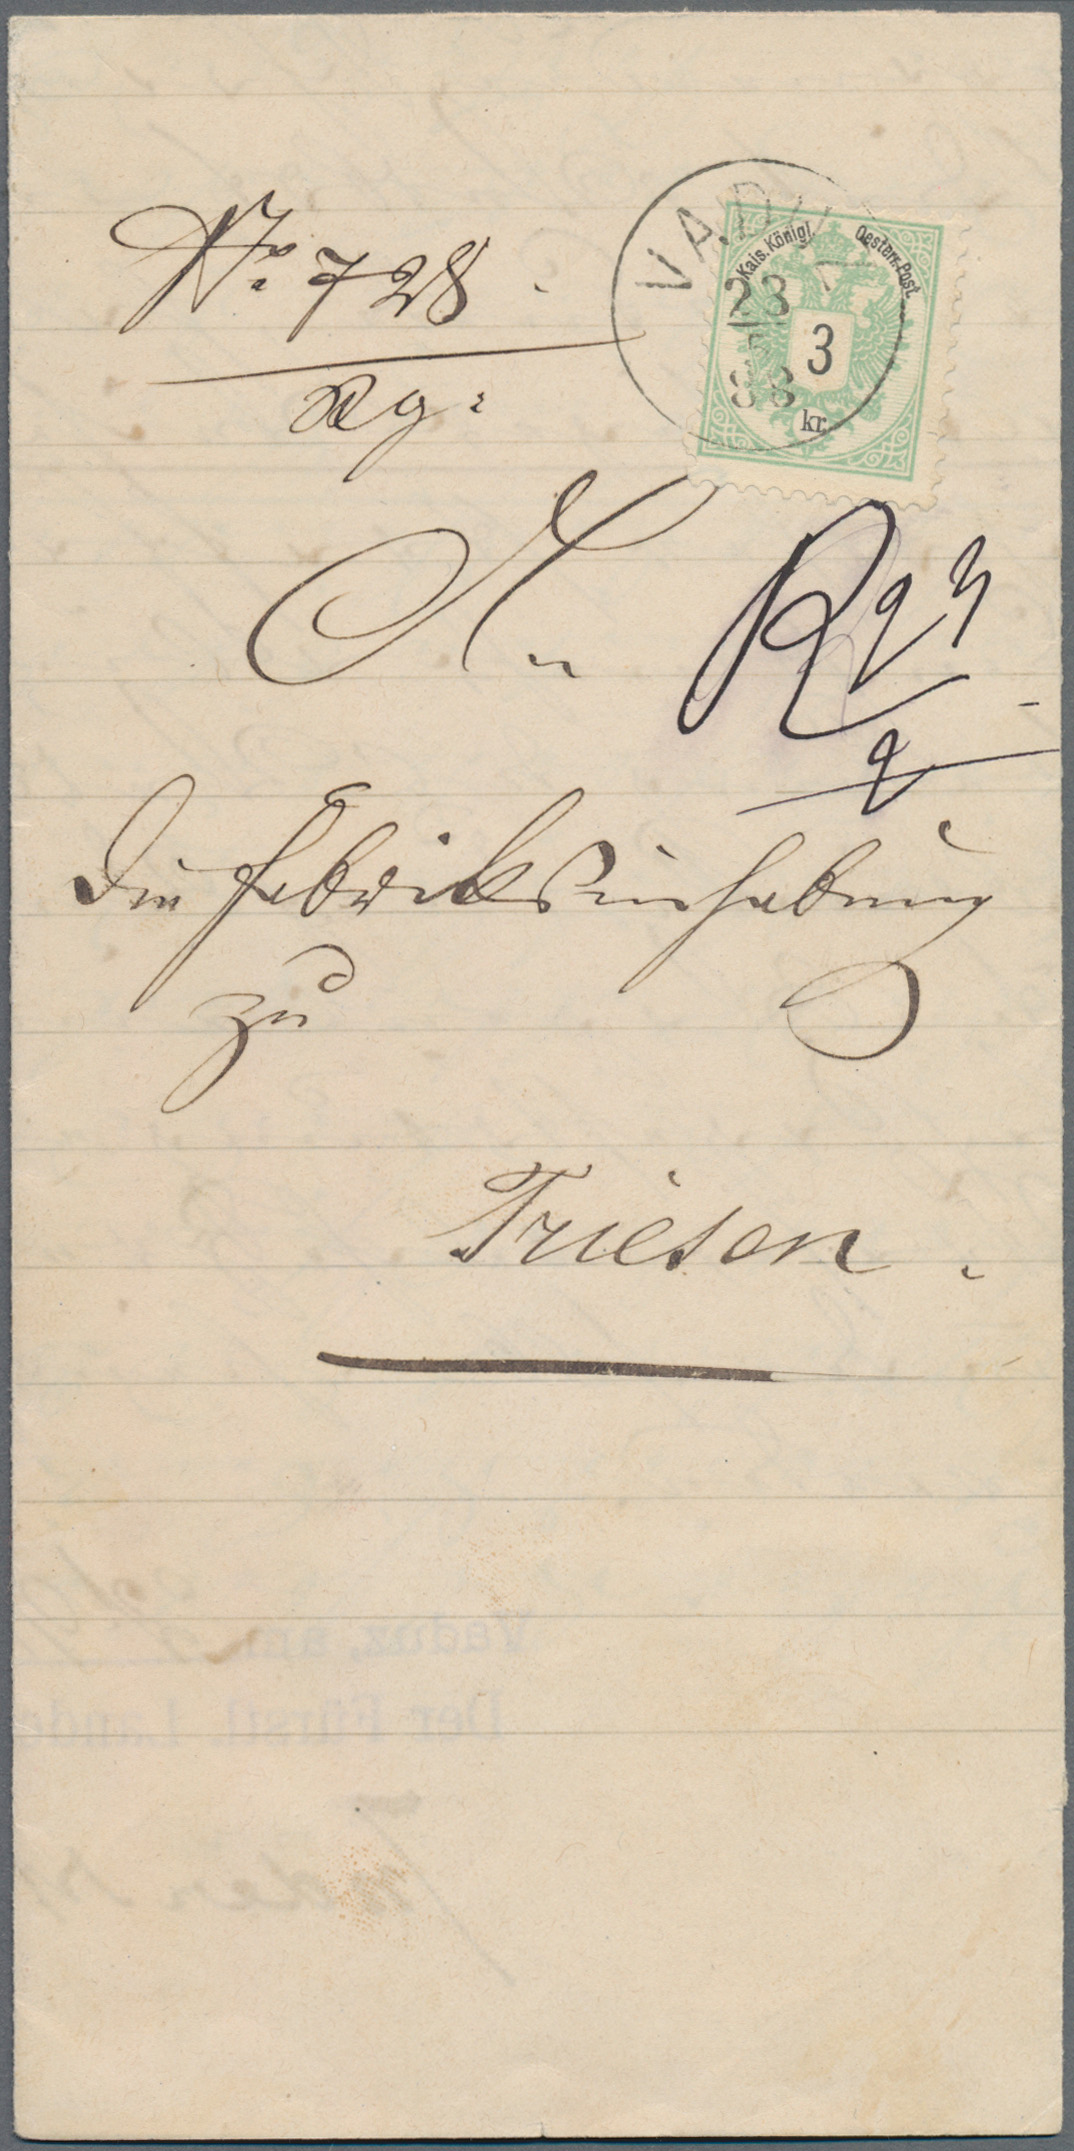 No. 728.
Rg:
VADUZ
23
5
88
Kais. Königl. Oesterr. Post.
3
kr.
An
die Fabriksinhabung
zu
Triesen.
Vaduz, am
Der Fürstl. Lande